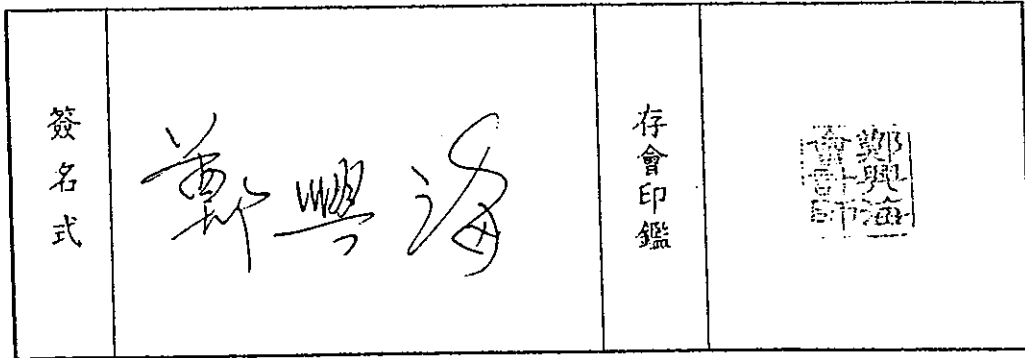 簽名式
鄭興海
存會印鑑
鄭興海
會計師